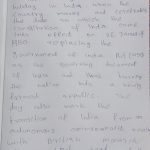 holiday in India when the
country marks and celebrates
the date on which the
Constitution of India came
into effect on 26 January
1950 replacing the
Government of India Act (1935)
as the governing document
of India and thus turning
the nation into a newly
formed republic. The
day also marks the
transition of India from an
autonomous commonwealth realm
with British Monarch